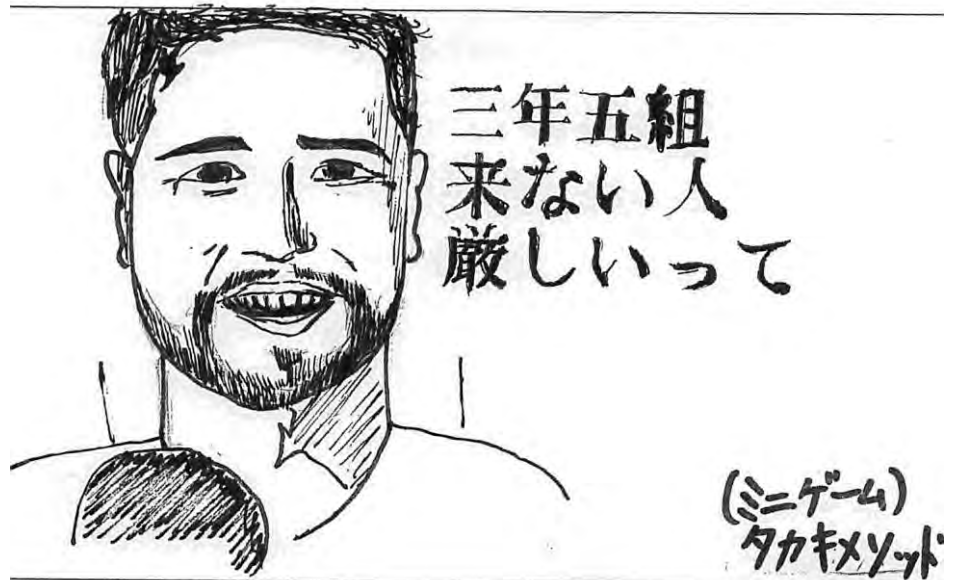 三年五組
来ない人
厳しいって
(ミニゲーム)
タカキメソッド